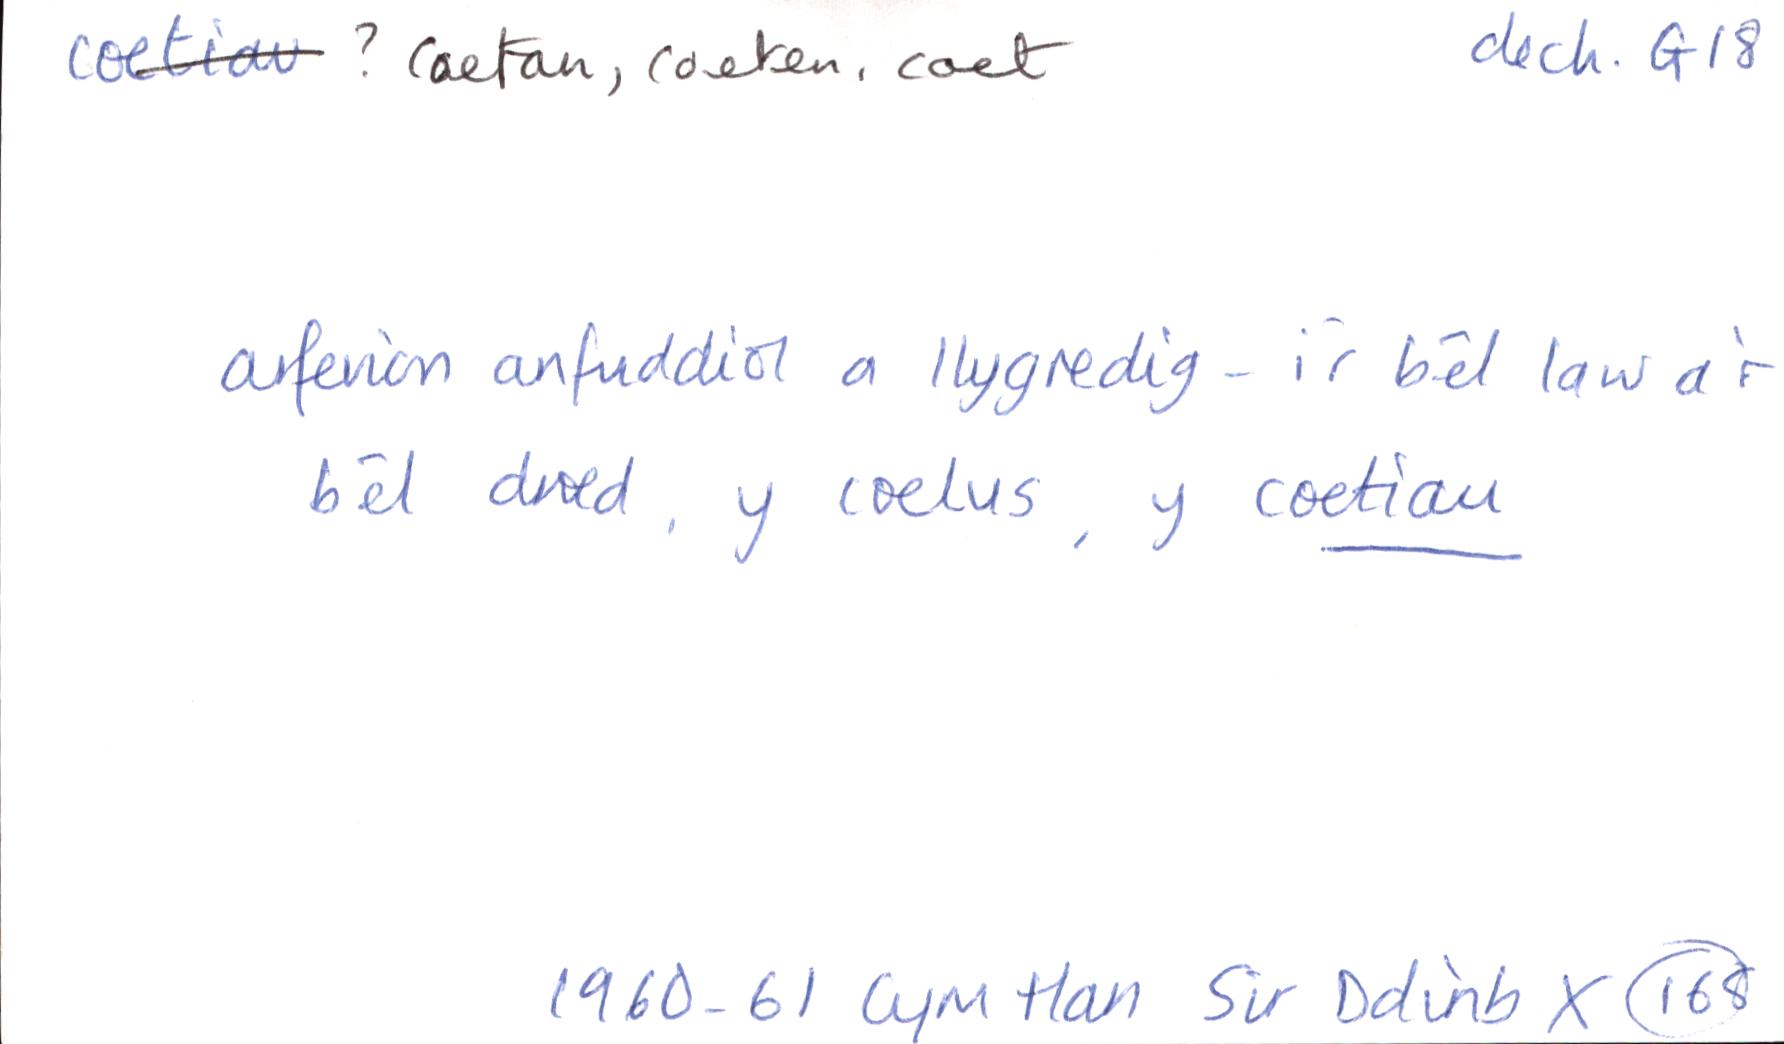 coetiau ? Coetan, coeten, coet dech. G18
arferion anfuddiol a llygredig - i'r bêl law a'r
bêl droed, y coelus, y coetiau
1960-61 Cym Han Sir Ddinb X 168